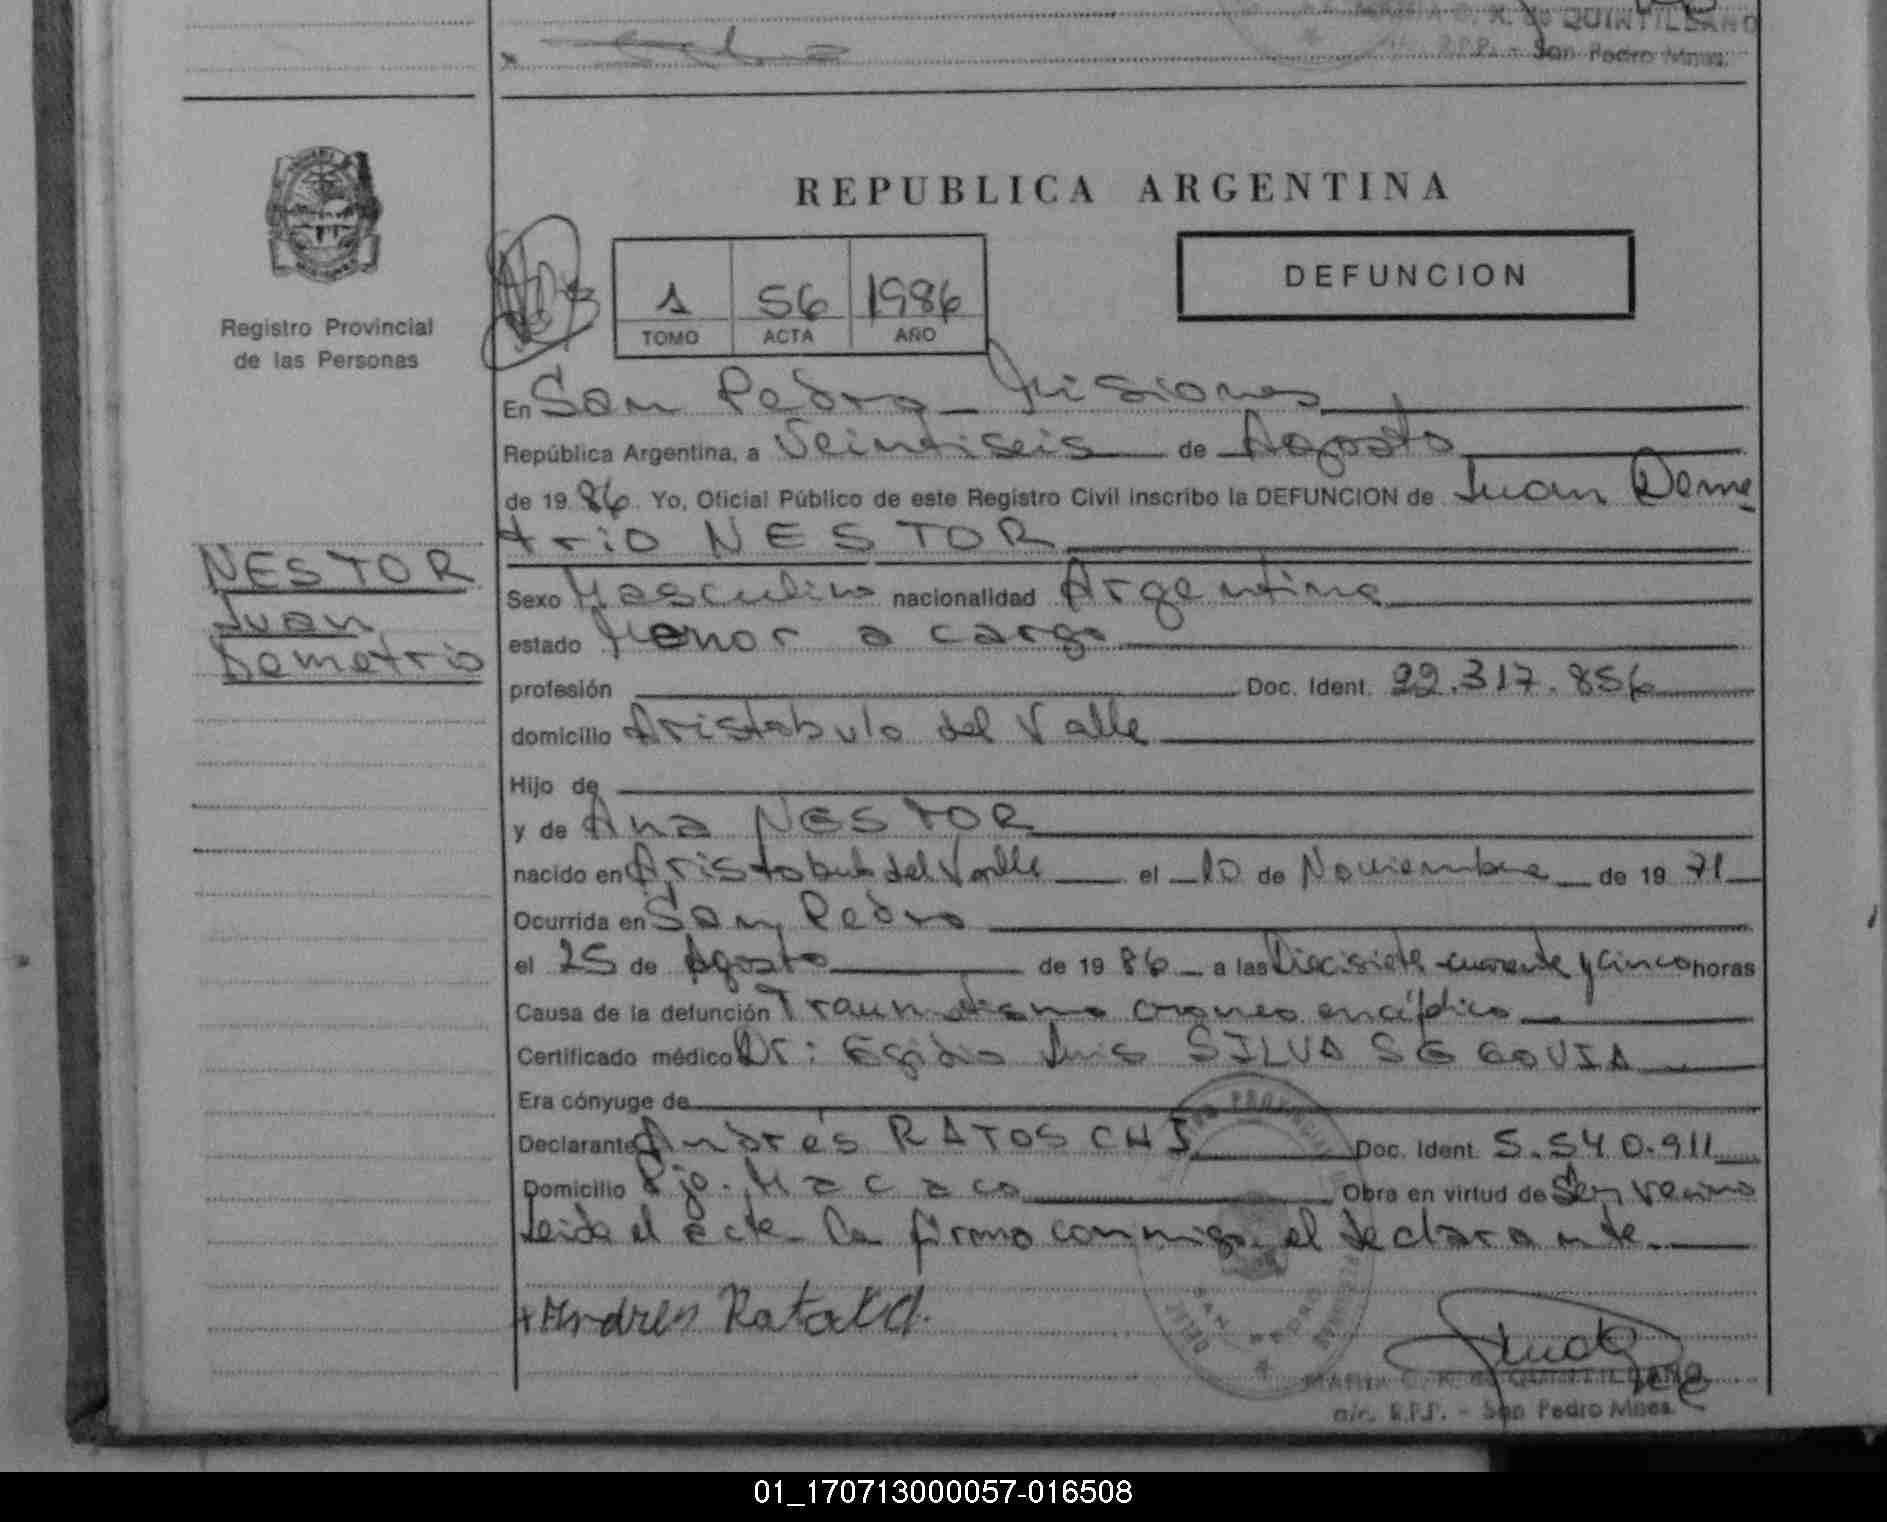 QUINTILLANO
R.P.P. - San Pedro Mnes.
REPUBLICA ARGENTINA
DEFUNCION
1 56 1986
TOMO ACTA AÑO
Registro Provincial
de las Personas
En San Pedro - Misiones
República Argentina, a Veintiseis de Agosto
de 1986 Yo, Oficial Público de este Registro Civil inscribo la DEFUNCION de Juan Deme
trio NESTOR
NESTOR
Juan
Demetrio
Sexo Masculino nacionalidad Argentina
estado Menor a cargo
profesión Doc. Ident. 22.317.856
domicilio Aristobulo del Valle
Hijo de
y de Ana NESTOR
nacido en Aristobulo del Valle el 10 de Noviembre de 1971
Ocurrida en San Pedro
el 25 de Agosto de 1986 a las Diecisiete cuarenta y cinco horas
Causa de la defunción Traumatismo craneo encefálico
Certificado médico Dr: Egidio Luis SILVA SEGOVIA
Era cónyuge de
Declarante Andrés RATOSCHI Doc. Ident. 5.540.911
Domicilio Pje. Macaco Obra en virtud de Ser vecino
Leida el acta la firma conmigo el declarante.
SAN PEDRO
MARIA C. K. de QUINTILLANO
a/c. R.P.P. - San Pedro Mnes.
01_170713000057-016508